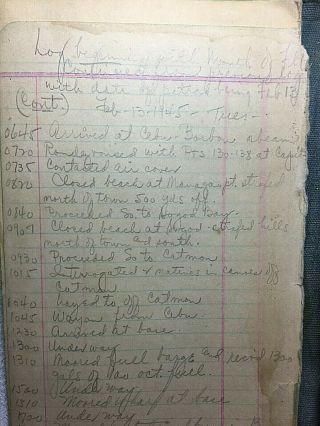 Log beginning with month of Feb
Continued from previous log
with date of patrol being Feb 13
(Cont.) Feb-13-1945- Tues-
0645 Arrived at Cebu Borbon abeam
0720 Rondezvoused with PTs 130-138 at
0735 Contacted air cover
0820 Closed beach at pt. strafed
north of town 500 yds off.
0840 Proceeded So. to Bogod Bay.
0907 Closed beach at strafed hills
north of town and south.
0930 Proceeded So. to Catmon
1015 Interrogated 2 natives in canoe off
Catmon
1040 Layed to off Catmon
1045 Wayon from Cebu.
1230 Arrived at base.
1300 Underway
1310 Moored fuel barge and recvd 1300
gals of 100 oct. fuel.
1500 Underway
1510 Moored wharf at base
1700 Underway